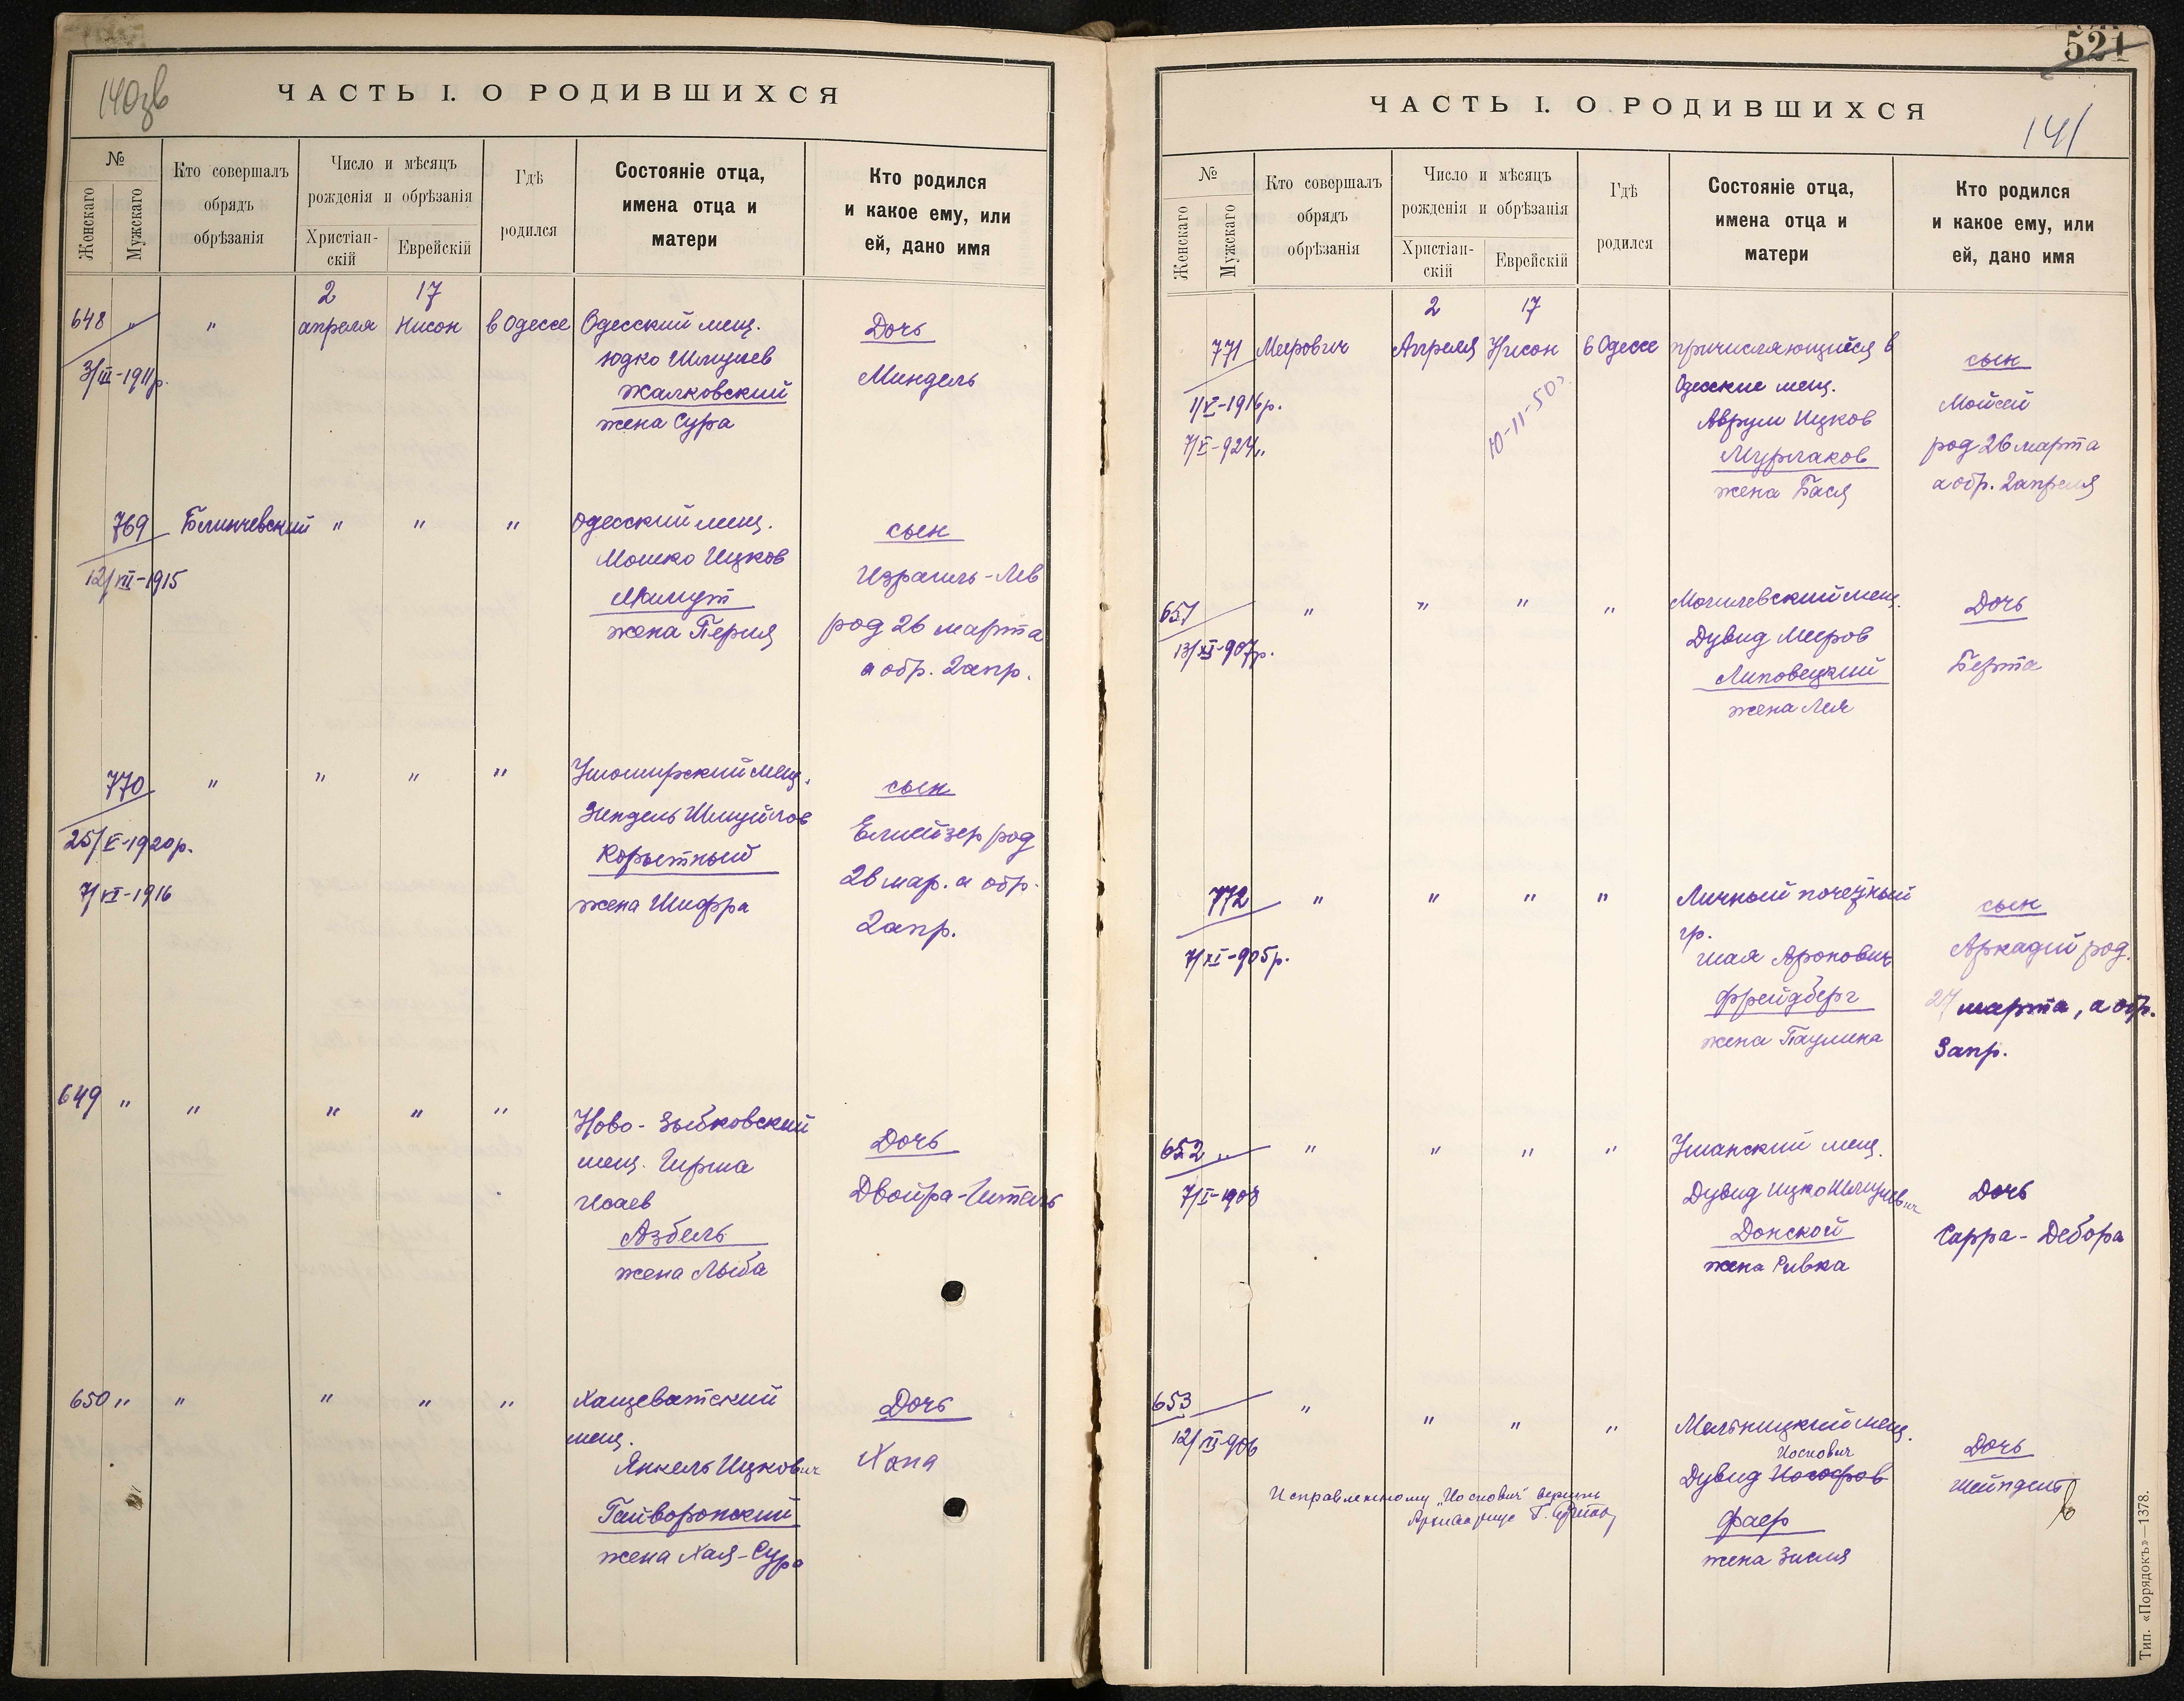 140зв
ЧАСТЬ I. О РОДИВШИХСЯ
№
Женскаго
Мужскаго
Кто совершалъ
обрядъ
обрѣзанія
Число и мѣсяцъ
рожденія и обрѣзанія
Христіан-
скій
Еврейскій
Гдѣ
родился
Состояніе отца,
имена отца и
матери
Кто родился
и какое ему, или
ей, дано имя
2 17
648 " " апреля Нисон в Одессе Одесский мещ. Дочь
3/III-1911р.
Юдко Шмулев
Жалковский
жена Сура
Миндель
769 Блинчевский " " " Одесский мещ. сын
12/VII-1915
Мошко Ицков
Мамут
жена Перия
Израиль-Лев
род 26 марта
а обр. 2 апр.
770 " " " " Ушомирский мещ. сын
25/V-1920р.
7/VI-1916
Зиндель Шмуйлов
Корыстный
жена Шифра
Елиейзер род
26 мар. а обр.
2 апр.
649 " " " " " Ново-Зыбковский
мещ. Гирша
Исаев
Азбель
жена Лыба
Дочь
Двойра-Итель
650 " " " " " Хащеватский
мещ.
Янкель Ицкович
Гайворонский
жена Хая-Сура
Дочь
Хана
521
141
ЧАСТЬ I. О РОДИВШИХСЯ
№
Женскаго
Мужскаго
Кто совершалъ
обрядъ
обрѣзанія
Число и мѣсяцъ
рожденія и обрѣзанія
Христіан-
скій
Еврейскій
Гдѣ
родился
Состояніе отца,
имена отца и
матери
Кто родился
и какое ему, или
ей, дано имя
2 17
771 Меерович Апреля Нисон в Одессе причисляющийся в
Одесские мещ.
Аврум Ицков
Мурлаков
жена Бася
1/V-1916р.
7/V-924"
10-11-50
сын
Мойсей
род 26 марта
а обр. 2 апреля
651 " " " " Могилевский мещ.
13/XI-907р.
Дувид Мееров
Липовецкий
жена Лея
Дочь
Берта
772 " " " " Личный почетный
гр.
7/XI-905р.
Шая Аронович
Фрейдберг
жена Паулина
сын
Аркадий род.
27 марта, а обр.
3 апр.
652 " " " " " Уманский мещ.
7/I-1908
Дувид Ицко Шмулевич
Донской
жена Ривка
Дочь
Сарра-Дебора
653 " " " " Мельницкий мещ.
12/III-906
Иоспович
Дувид Иосфов
Фаер
жена Зисля
Дочь
Шейндель
Исправленному „Иоспович" верить
Тип. «Порядокъ»—1378.